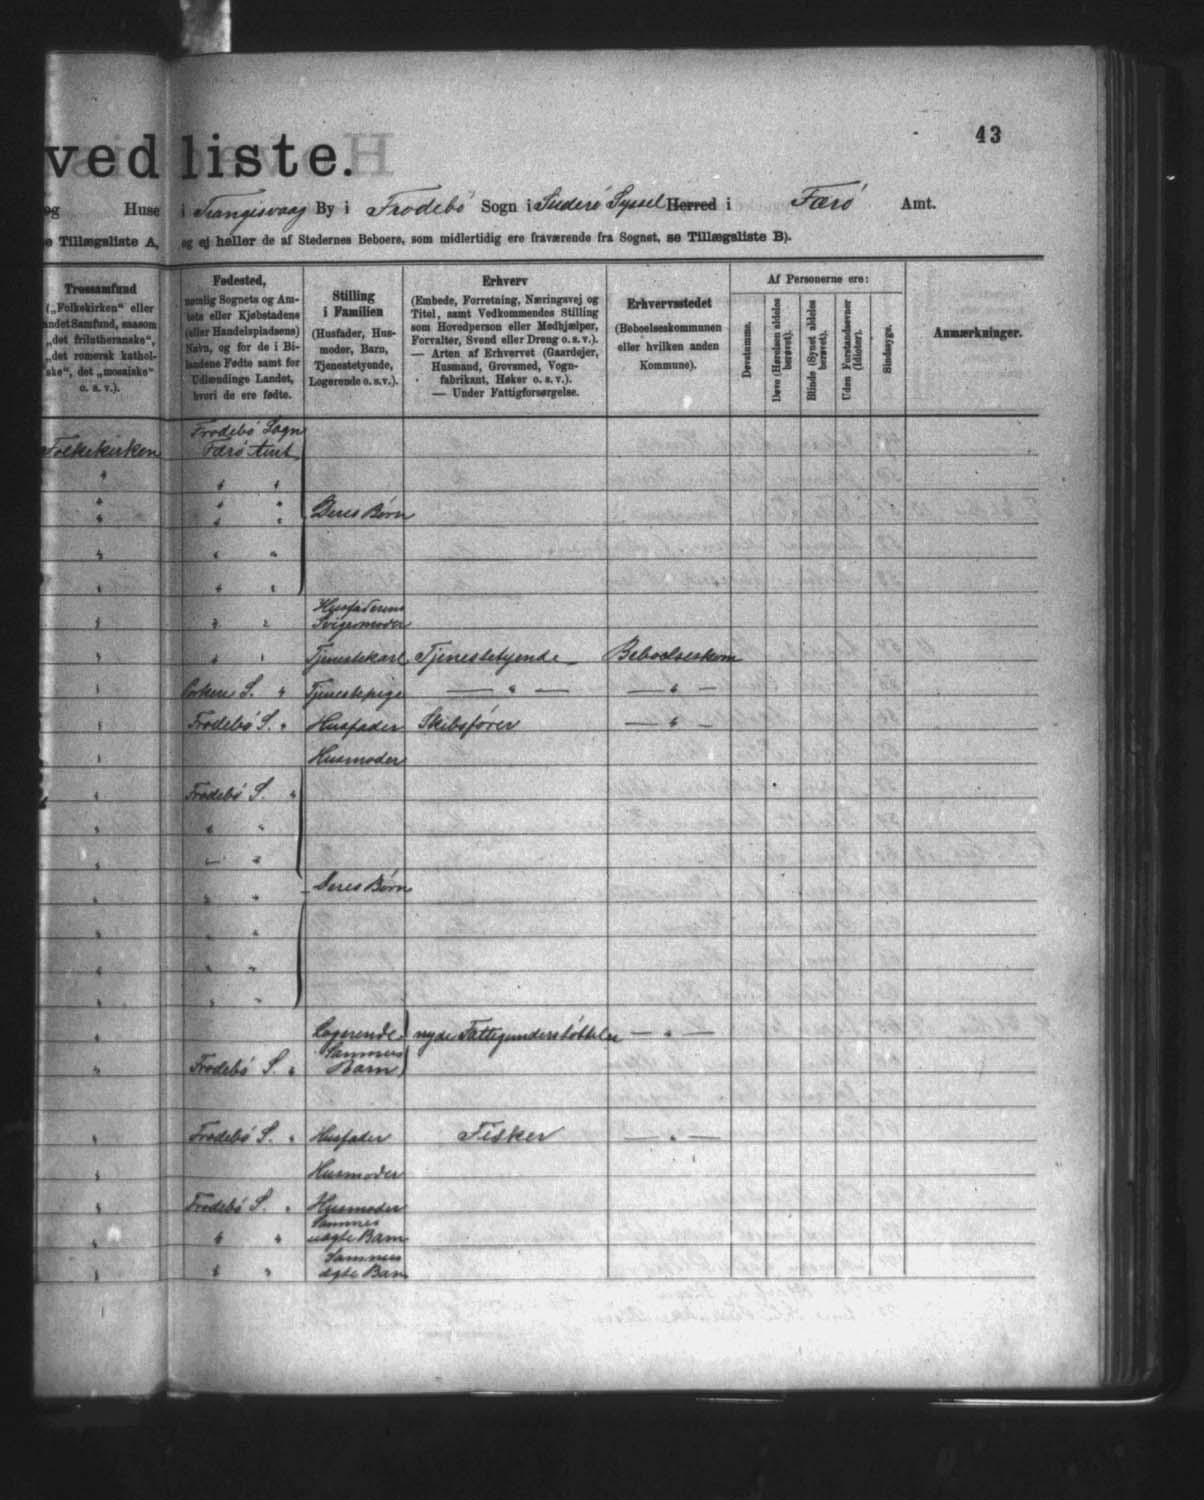 43
ved liste.
og Huse i Trangisvaag By i Frodebø Sogn i Suderø Syssel Herred i Færø Amt.
e Tillægsliste A, og ej heller de af Stedernes Beboere, som midlertidig ere fraværende fra Sognet, se Tillægsliste B).
Trossamfund
(„Folkekirken“ eller
andet Samfund, saasom
„det frilutheranske“,
„det romersk kathol-
ske“, det „mosaiske“
o. s. v.).
Fødested,
nemlig Sognets og Am-
tets eller Kjøbstadens
(eller Handelspladsens)
Navn, og for de i Bi-
landene Fødte samt for
Udlændinge Landet,
hvori de ere fødte.
Stilling
i Familien
(Husfader, Hus-
moder, Barn,
Tjenestetyende,
Logerende o. s. v.).
Erhverv
(Embede, Forretning, Næringsvej og
Titel, samt Vedkommendes Stilling
som Hovedperson eller Medhjælper,
Forvalter, Svend eller Dreng o. s. v.).
— Arten af Erhvervet (Gaardejer,
Husmand, Grovsmed, Vogn-
fabrikant, Høker o. s. v.).
— Under Fattigforsørgelse.
Erhvervsstedet
(Beboelseskommunen
eller hvilken anden
Kommune).
Af Personerne ere:
Døvstumme.
Døve (Hørelsen aldeles
berøvet).
Blinde (Synet aldeles
berøvet).
Uden Forstandsevner
(Idioter).
Sindssyge.
Anmærkninger.
Frodebø Sogn
Folkekirken Færø Amt
" " "
" " "
" " " Deres Børn
" " "
" " "
Husfaderens
" " " Svigermoder
" " " Tjenestekarl Tjenestetyende — Beboelseskom
" Porkere S. " Tjenestepige — " — — " —
" Frodebø S. " Husfader Skibsfører — " —
" Husmoder
" Frodebø S. "
" " "
" — "
" " " Deres Børn
" " "
" " "
" " "
" Logerende nyde Fattigunderstøttelse — " —
Sammes
" Frodebø S. " Barn
" Frodebø S. " Husfader Fisker — " —
" Husmoder
" Frodebø S. " Husmoder
Sammes
" " " uægte Barn
Sammes
" " " ægte Barn